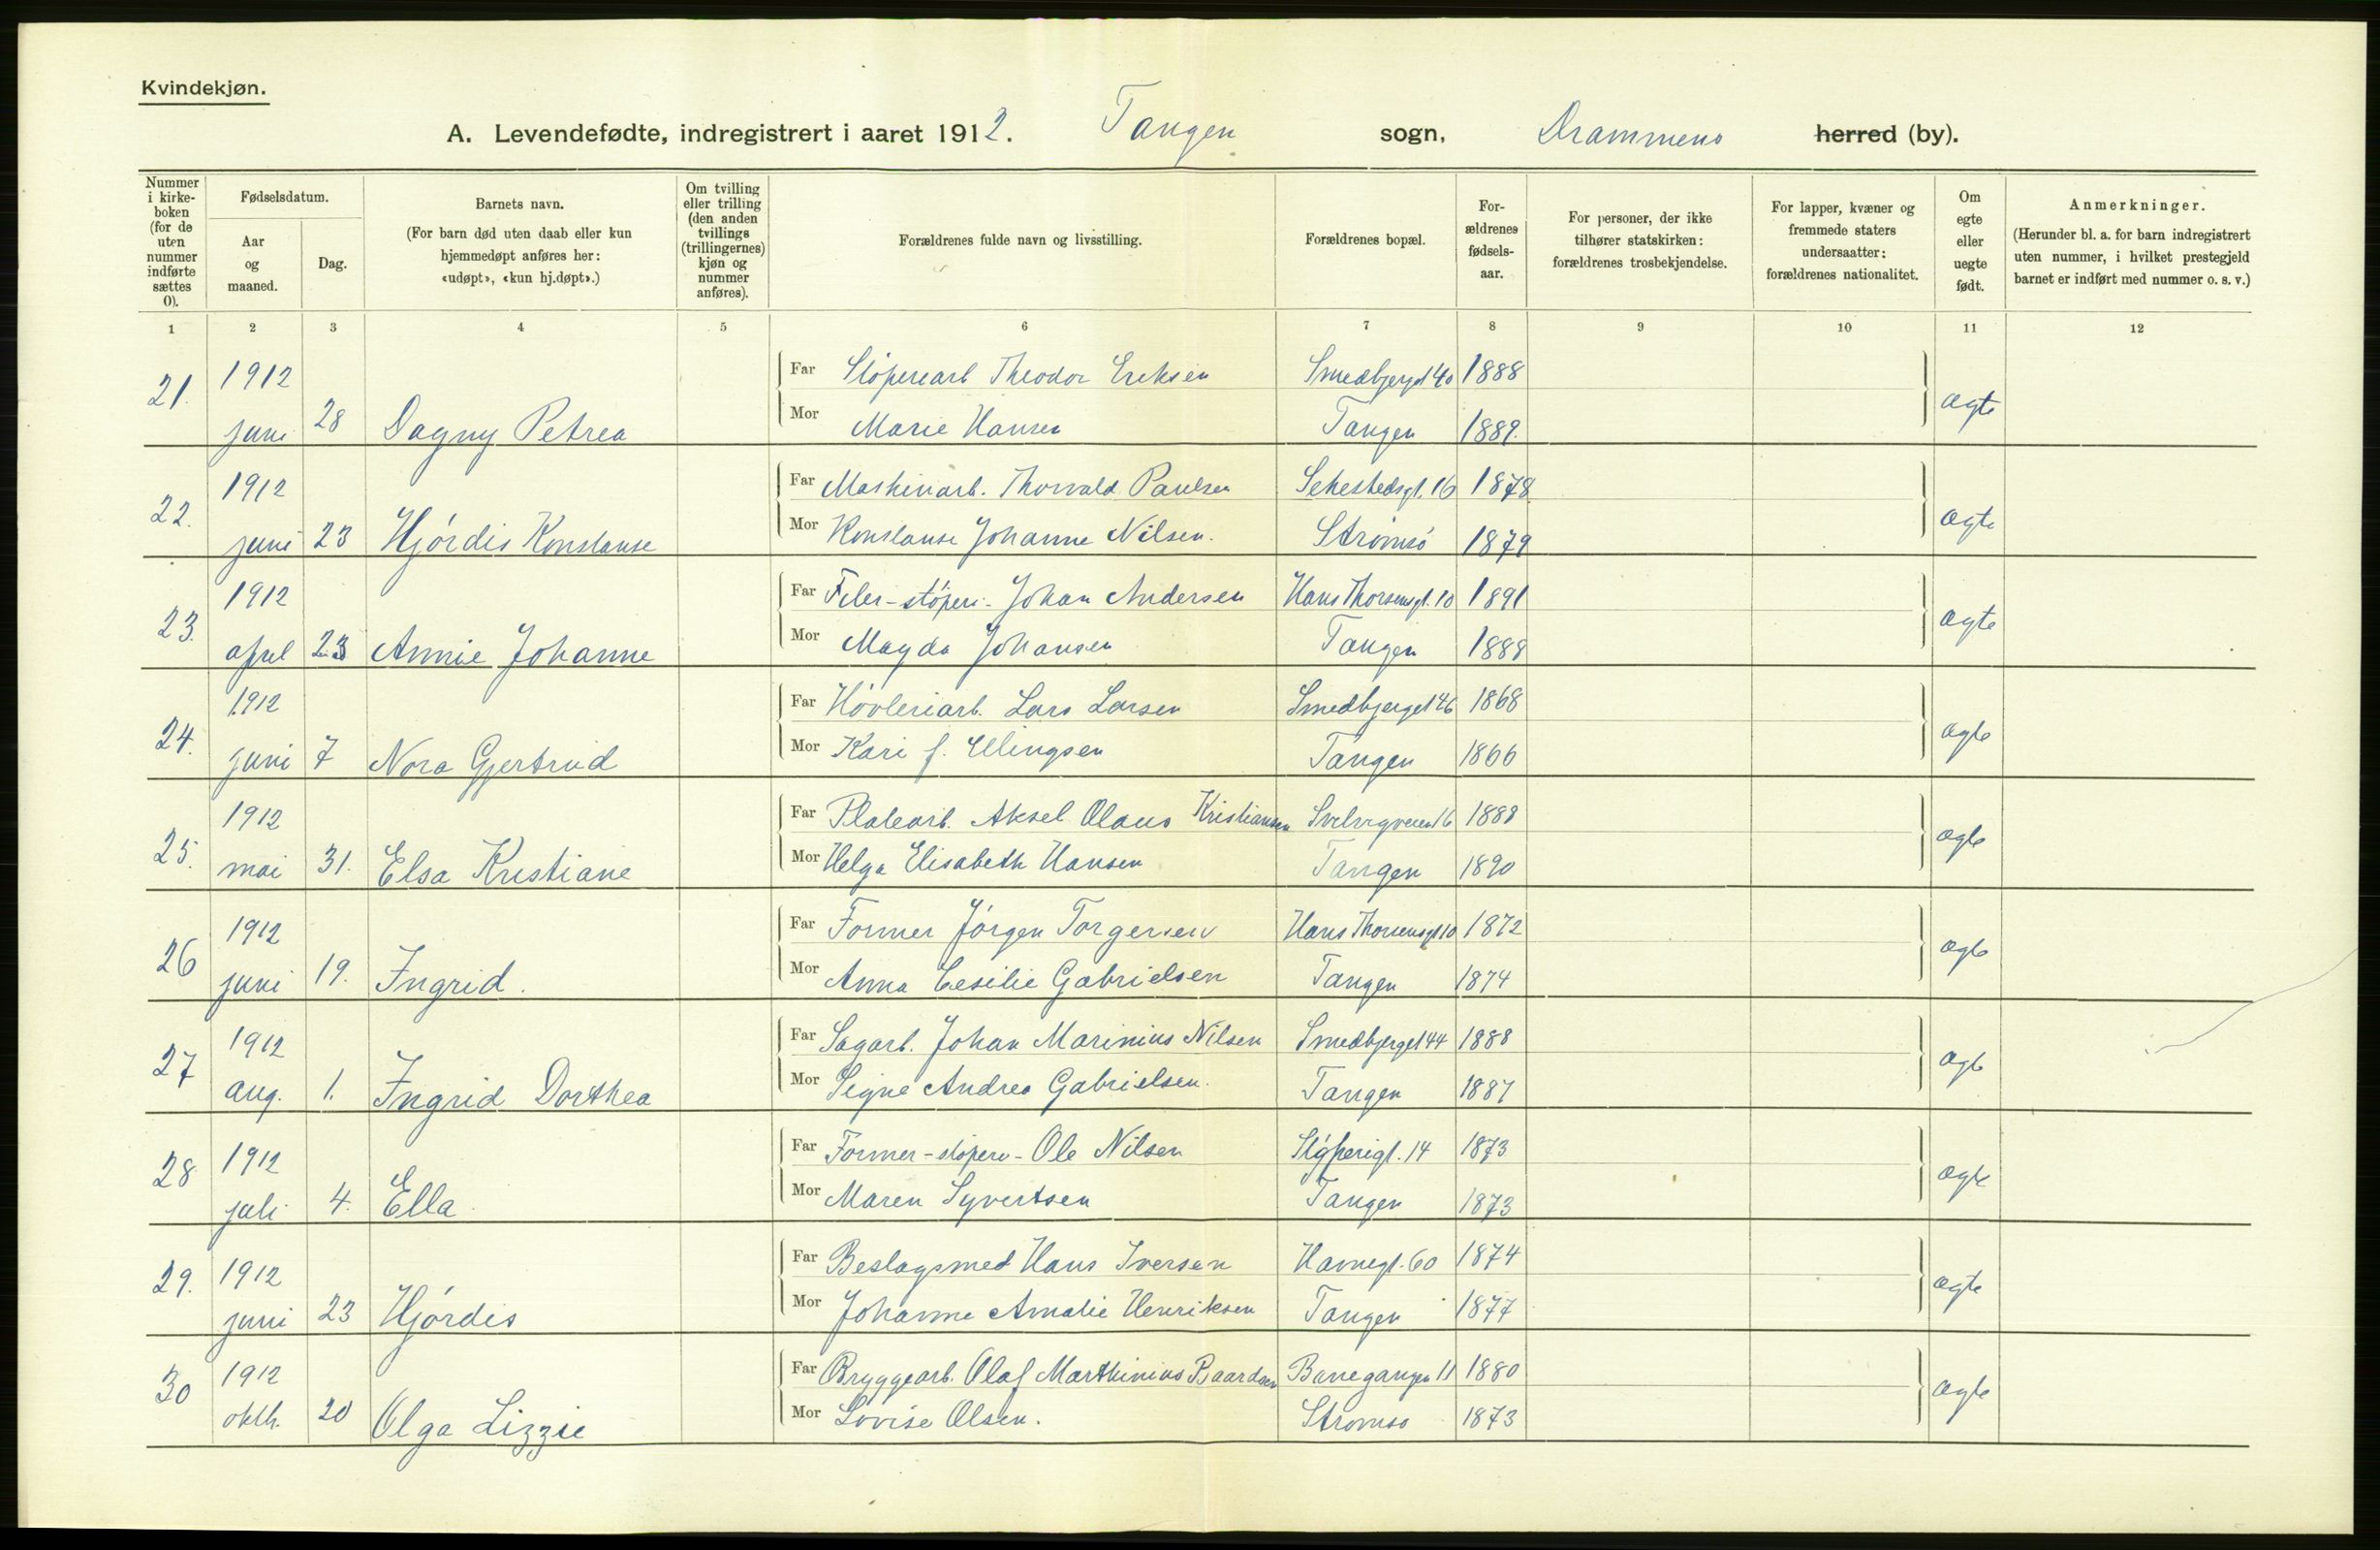 Kvindekjøn.
A. Levendefødte, indregistrert i aaret 1912. Tangen sogn, Drammens herred (by).
Nummer i kirke-boken (for de uten nummer indførte sættes 0).
Fødselsdatum.
Aar og maaned.
Dag.
Barnets navn.
(For barn død uten daab eller kun hjemmedøpt anføres her: «udøpt», «kun hj.døpt».)
Om tvilling eller trilling (den anden tvillings (trillingernes) kjøn og nummer anføres).
Forældrenes fulde navn og livsstilling.
Forældrenes bopæl.
For-ældrenes fødsels-aar.
For personer, der ikke tilhører statskirken: forældrenes trosbekjendelse.
For lapper, kvæner og fremmede staters undersaatter: forældrenes nationalitet.
Om egte eller uegte født.
Anmerkninger.
(Herunder bl. a. for barn indregistrert uten nummer, i hvilket prestegjeld barnet er indført med nummer o. s. v.)
1 2 3 4 5 6 7 8 9 10 11 12
21. 1912 Far Støperiarb Theodor Eriksen Smedbjerget 40 1888 ægte
juni 28 Dagny Petrea Mor Marie Hansen Tangen 1889.
22. 1912 Far Maskinarb. Thorvald Paulsen Sehestedsgt. 16 1878 ægte
juni 23 Hjórdis Konstanse Mor Konstanse Johanne Nilsen. Strømsó 1879
23. 1912 Far Filer-stóperi- Johan Andersen Hans Thorsensgt. 10 1891 ægte
april 23 Annie Johanne Mor Magda Johansen Tangen 1888
24. 1912 Far Hóvleriarb. Lars Larsen Smedbjerget 46 1868 ægte
juni 7 Nora Gjertrud Mor Kari f. Ellingsen Tangen 1866
25. 1912 Far Platearb. Aksel Olaus Kristiansen Svelvigveien 16 1888 ægte
mai 31. Elsa Kristiane Mor Helga Elisabeth Hansen Tangen 1890
26 1912 Far Former Jórgen Torgersen Hans Thorsensgt 10 1872 ægte
juni 19. Ingrid. Mor Anna Cesilie Gabrielsen Tangen 1874
27 1912 Far Sagarb. Johan Marinius Nilsen Smedbjerget 44 1888 ægte
aug. 1. Ingrid Dorthea Mor Signe Andrea Gabrielsen. Tangen 1887
28 1912 Far Former-stóperi- Ole Nilsen Stóperigt. 14 1873 ægte
juli 4. Ella Mor Maren Syvertsen Tangen 1873
29. 1912 Far Beslagsmed Hans Iversen Havnegt. 60 1874 ægte
juni 23 Hjórdis Mor Johanne Amalie Henriksen Tangen 1877
30 1912 Far Bryggearb. Olaf Marthinius Baardsen 11 1880 ægte
oktb. 20 Olga Lizzie Mor Lovise Olsen. Strømsø 1873